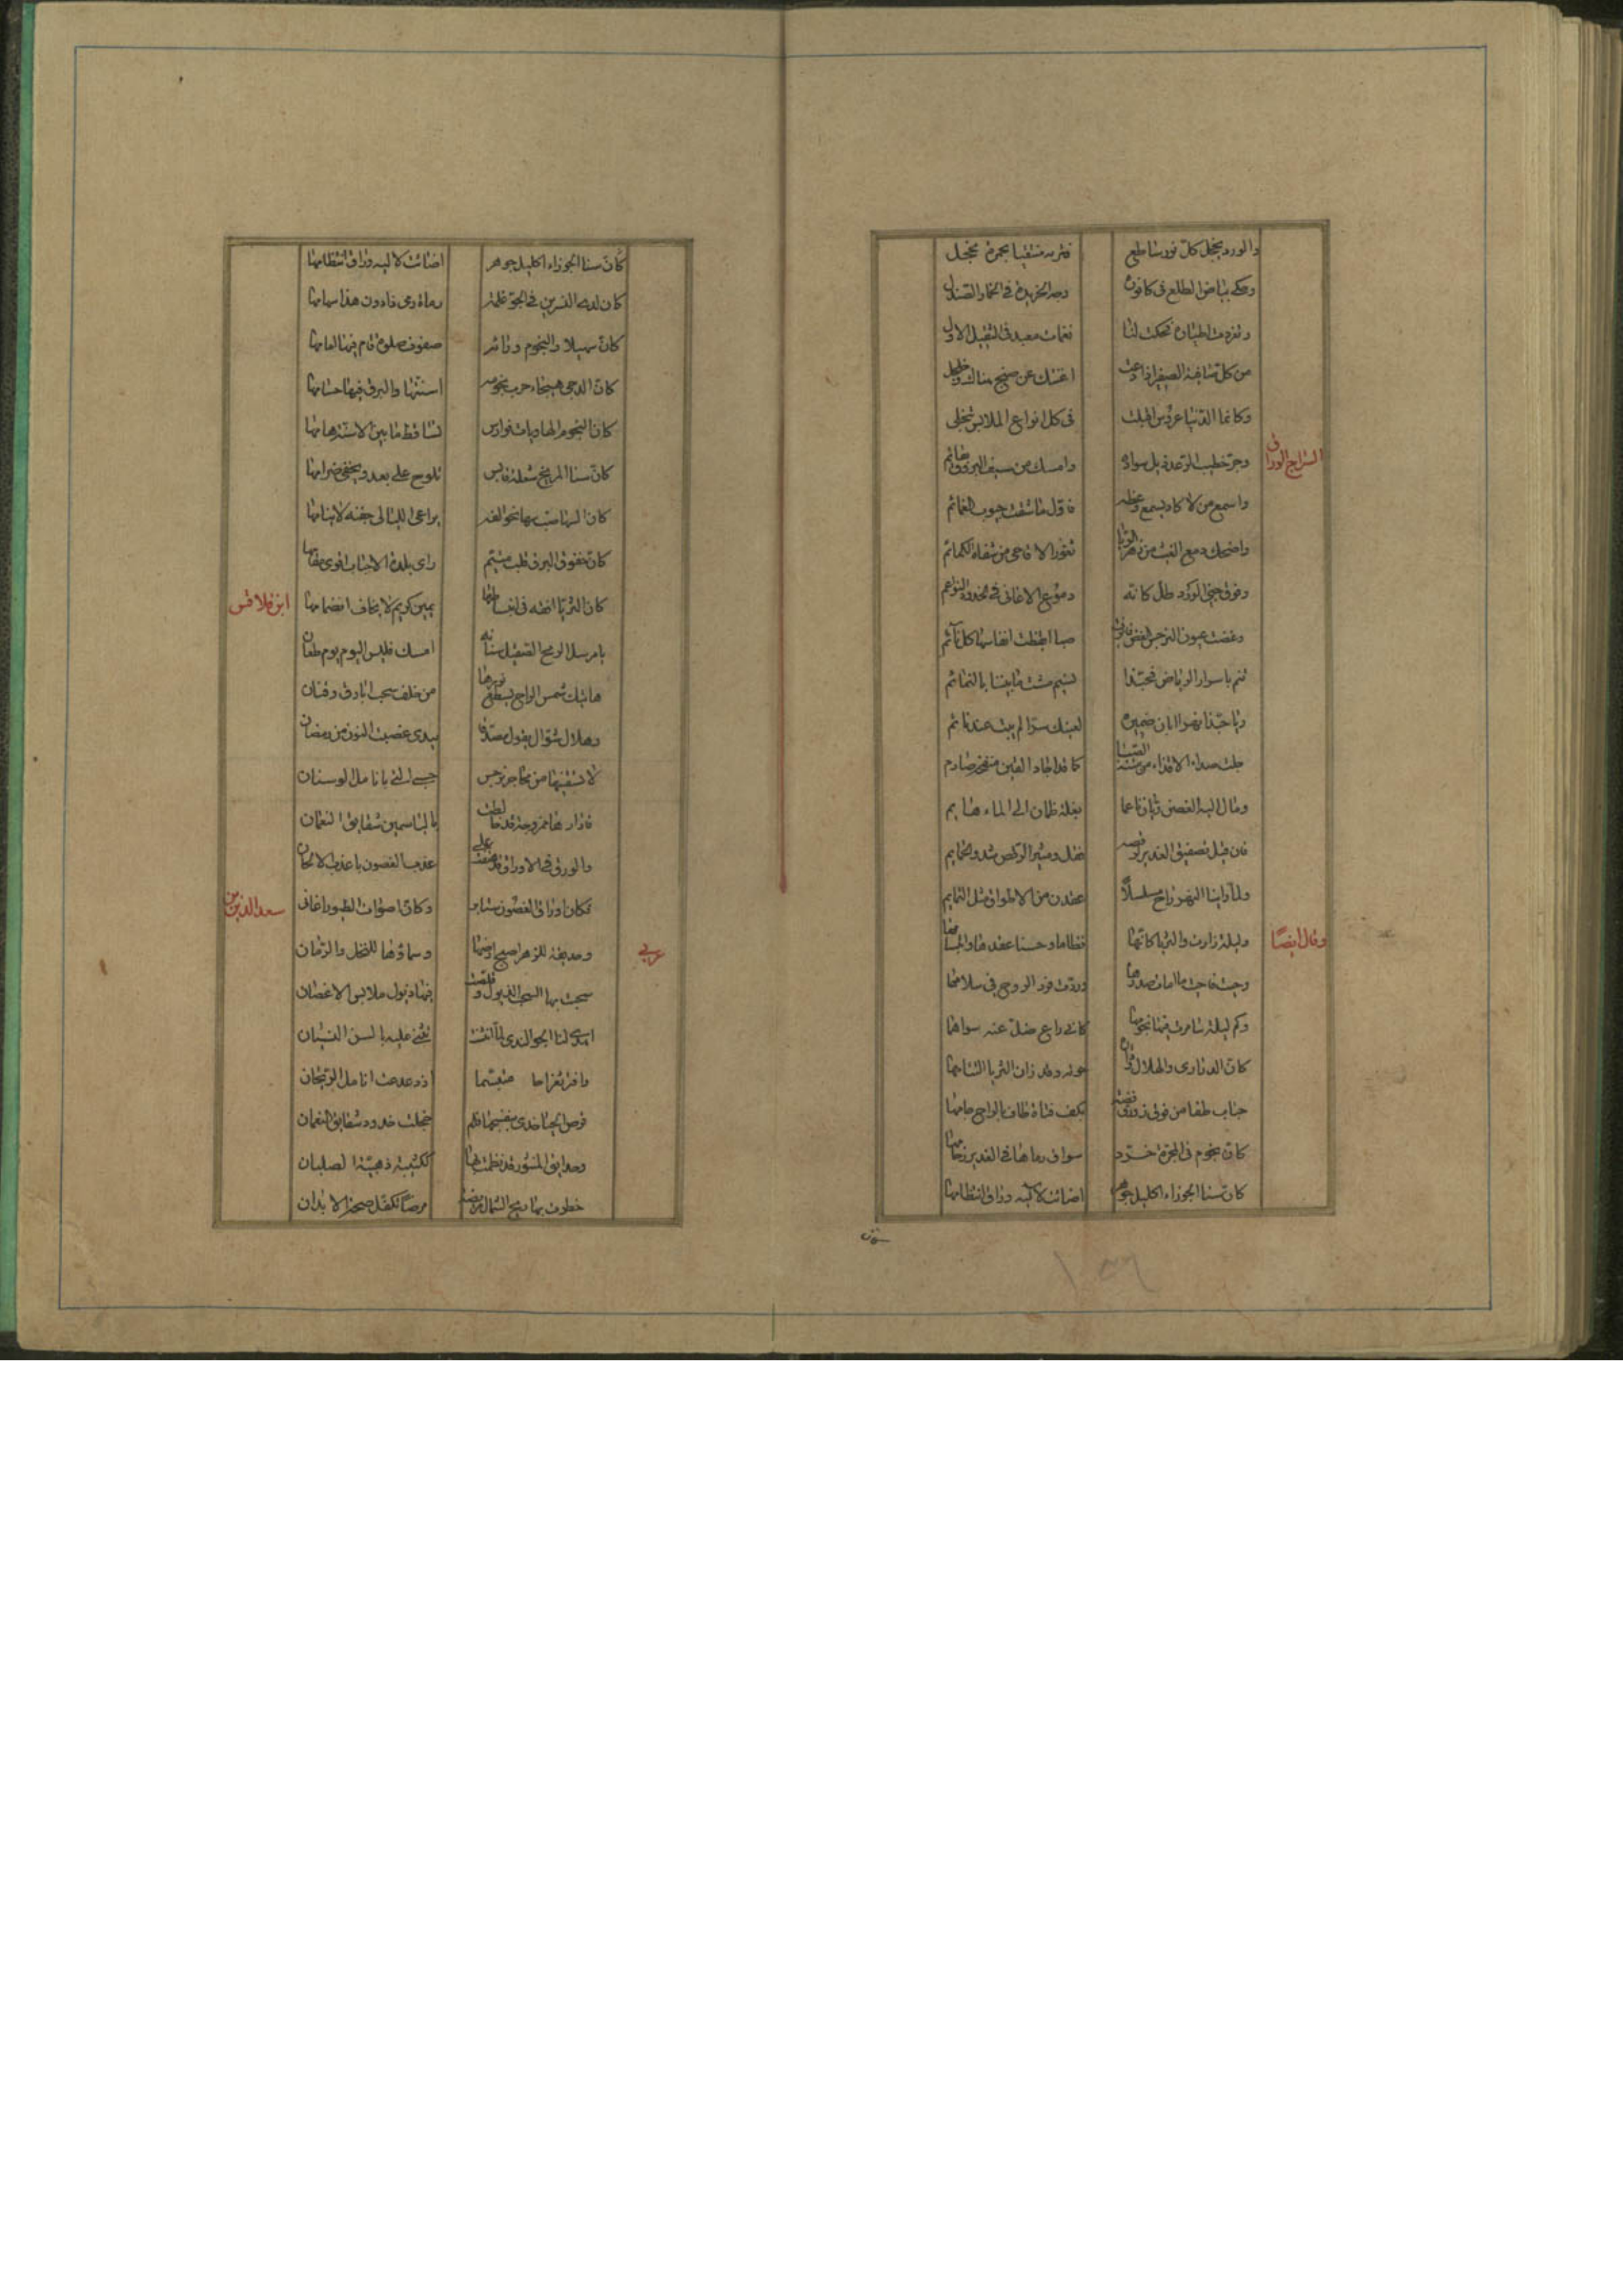 والورد يخجل كل نور ساطع فتريه منتقبا بحمرة مخجل
وحكى بياض الطلع فى كافوره وجه الخريدة فى الخمار الصندل
وتغردت اطياره فحكت لنا نغمات معبد فى الثقيل الاول
من كل اغنتك عن صنج هناك
وكانما الدنيا عروس اقبلت فى كل انواع الملابس تجتلى
السراج الوراق
وجر خطيب الرعد ذيل سواده وامسك من سيف البروق بقائم
واسمع من لا كاد يسمع وعظه فاول ما شقت جيوب الغمائم
واضحك دمع الغيث من زهر الربا ثغور الاقاحى من شفاه الكمائم
وفوق جنى الورد طل كانه دموع الاغانى فى خدود النواعم
وغضت عيون النرجس الغض صبا ايقظت انفاسها كل نائم
تنم باسرار الرياض فحبذا نسيم مشت ما بيننا بالنمائم
ويا حبذا نهر ابان ضميره لعينك سرا لم يبت عند كاتم
جلت صداء الاقذاء من متنه الصبا كما قد اجاد القين صفحة صارم
ومال اليه الغصن ريان ناعما بغلة ظمان الى الماء هايم
فمن قبل تصفيق الغدير لرقصه الركض شدو الحمايم
ولما راينا النهر راح مسلسلا عقدن من الاطواق مثل التمايم
وقال ايضا
وليلة زارت والثريا كانها نظاما وحسنا عقدها وابتسامها
وحيت فاحيت ما امات صدودها وردت فرد الروح فى سلامها
وكم ليلة سامرت فيها نجومها كانى راع ضل عنه سوامها
كان الدياجى والهلال وقد زان الثريا التئامها
حباب طفا من فوق زورق فضة بكف فتاة طاف بالراح جامها
كان نجوم فى المجرة خرد سواق رماها فى الغدير زحامها
كان سنا الجوزاء اكليل جوهر اضائت لاليه وراق انتظامها
كان سنا الجوزاء اكليل جوهر اضائت لاليه وراق انتظامها
كان لدى النسرين فى الجو غلمة رماة رمى ذا دون هذا سهامها
كان سهيلا والنجوم ورائه صفوف صلوة قام فيها امامها
كان الدجى هيجاء حرب نجومه اسنتها والبرق فيها حسامها
كان النجوم الهاديات فوارس تساقط ما بين الاسنة هامها
كان سنا المريخ شعلة قابس تلوح على بعد ويخفى ضرامها
كان السها صب سها نحو الفه يراعى الليالى جفنه لا ينامها
كان خفوق البرق قلب متيم راى بلدة الاحباب اقوى مقامها
كان الثريا فى انبساطها يمين كريم لا يخاف انضمامها
ابن قلاقس
يا مرسل الرمح الصقيل سنانه امسك فليس اليوم يوم طعان
هاتيك شمس الراح يسطع نورها من خلف سحب ابارق وقنان
وهلال شوال يقول مصدقا بيدى غصبت النون من رمضان
لا تسقنيها من محاجر نرجس حسبى التى بانامل السوسان
فادارها ممزوجة قد خالطت بالياسمين شقايق النعمان
والورق فى الاوراق قد هتفت على عذب الغصون باعذب الالحان
فكان اوراق الغصون ستاير وكان اصوات الطيور اغانى
سعد الدين بن
عربى
وحديقة للزهر اصبح ارضها وسماؤها للنخل والرمان
سحبت بها السحب الذيول وقلصت فيها ذيول ملابس الاغصان
اسدى لنا الجو الندى لما اتت نثنى عليه بالسن القينان
وافتر ثغراها متبسما اذ دغدغت انامل الريحان
قرص الحيا خدى بنفسجها فلم خجلت خدود شقايق النعمان
وحدايق المنثور قد نظمت لها ككتيبة ذهبية الصلبان
خطرت بها ريح الشمال مريضة مرضا تكفل صحة الابدان